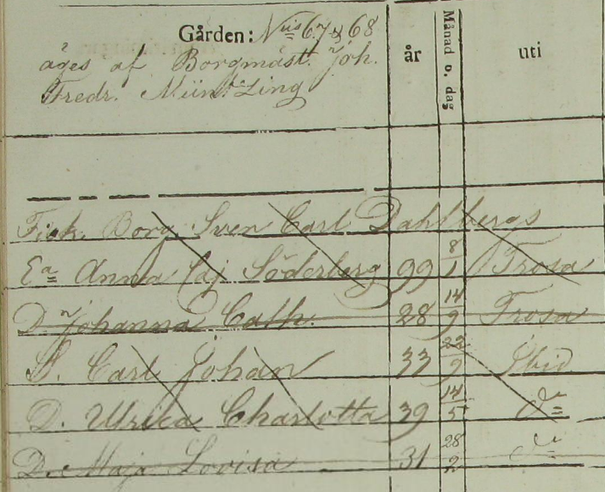 Gården: N:is 67 & 68 år Månad o. dag uti
äges af Borgmäst. Joh.
Fredr. Münt Zing
Fisk. Borg. Sven Carl Dahlbergs
E:a Anna Caj Söderberg 99 8/1 Trosa
D. Johanna Cath. 28 14/9 Trosa
S. Carl Johan 33 22/9 Ibid
D. Ulrica Charlotta 39 14/5 d:o
D. Maja Lovisa 31 28/2 d:o